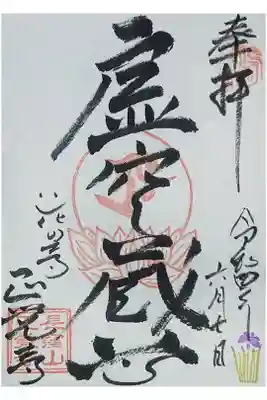 奉拝
令和四年
六月七日
虚空蔵尊
花の寺
正覚寺